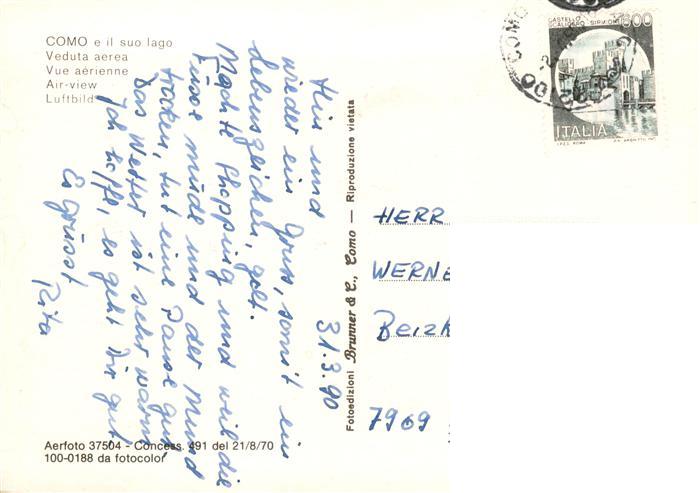 COMO e il suo lago
Veduta aerea
Vue aérienne
Air-view
Luftbild
31.3.90
Hin und
wieder ein Gruss, somit ein
Lebenszeichen, gelt.
Machte Shopping und weil die
Füsse müde und der Mund
trocken, tut eine Pause gut.
Das Wetter ist sehr warm
Ich hoffe, es geht Dir gut.
Es grüsst
Rita
Aerfoto 37504 - Concess. 491 del 21/8/70
100-0188 da fotocolor
Fotoedizioni Brunner & C., Como — Riproduzione vietata
CASTELLO
SCALIGERO SIRMIONE
600
ITALIA
I.P.Z.S. ROMA
COMO
HERR
WERNE
Beizk
7969